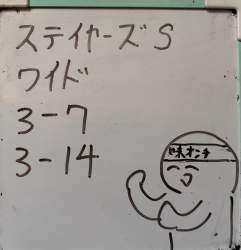 ステイヤーズS
ワイド
3-7
3-14
味オンチ